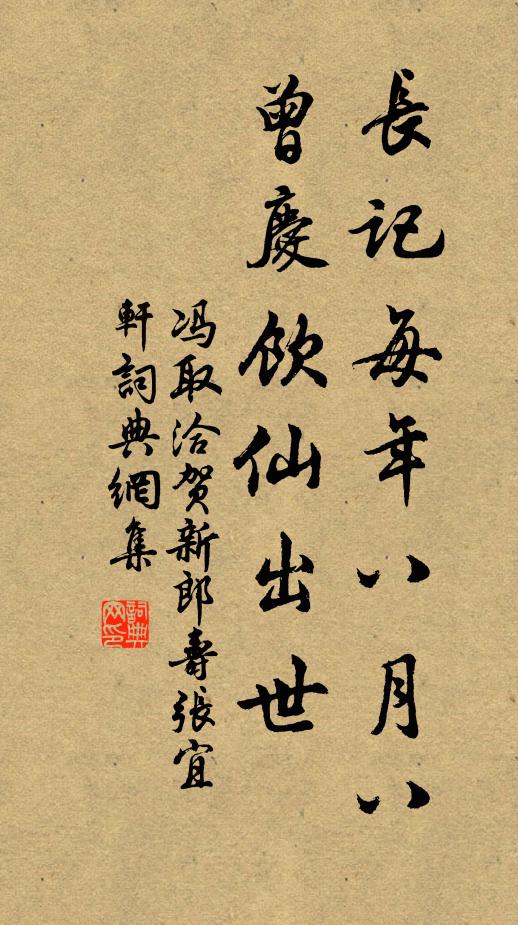 長記每年八月八
曾慶飲仙出世
冯取洽贺新郎壽張宜
軒詞典網集
詞典网印